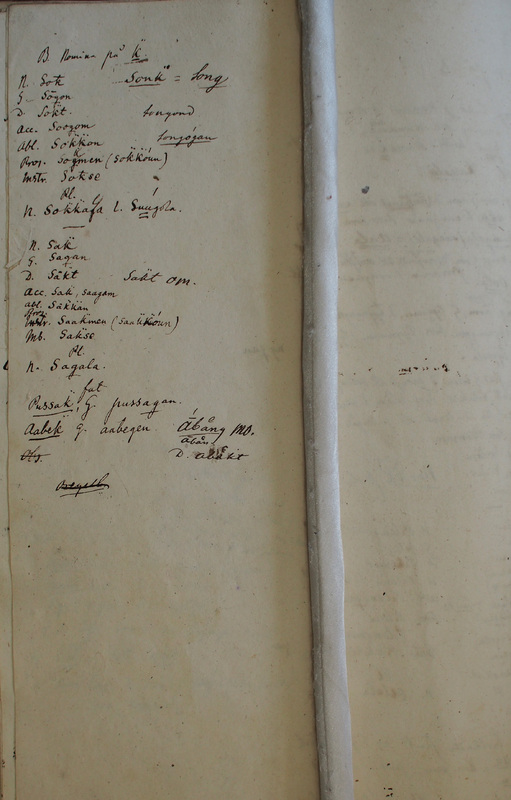 B. Nomina på k.
N. Sok Sonk = song
G. Sogon
D. Sokt. songond
Acc. Soogom
Abl. Sokkon songógan
Pros. Sogmen (sokkóun)
Instr. Sokse
Pl.
N. Sokkala l. Suugola.
N. Sak
G. Sagan
D. Sakt Sakt om.
Acc. Sak, saagam
Abl. Sakkan
Instr. Saakmen (saakkóun)
Sakse
Pl.
N. Sagala.
fat
Pussak, G. pussagan.
Aabek G. aabegen. Ábång
Abån
D. abakt